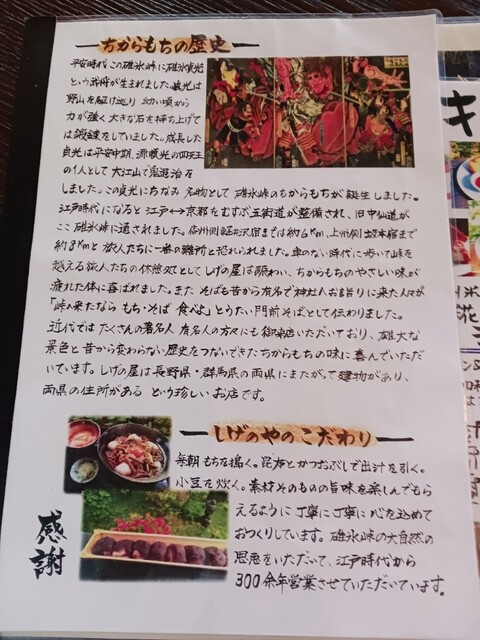 ちからもちの歴史
平安時代この碓氷峠に碓氷貞光
という武将が生まれました。貞光は
野山を駆け巡り 幼い頃から
力が強く大きな石を持ち上げて
は鍛錬をしていました。成長した
貞光は平安中期、源頼光の四天王
の1人として 大江山で鬼退治を
しました。この貞光にちなみ 名物として 碓氷峠のちからもちが誕生しました。
江戸時代になると 江戸↔京都をむすぶ五街道が整備され、旧中仙道が
ここ碓氷峠に通されました。信州側軽井沢宿までは約6Km、上州側坂本宿まで
約8Kmと 旅人たちに一番の難所と恐れられました。車のない時代に歩いて峠を
越える旅人たちの休憩処としてしげの屋は賑わい、ちからもちのやさしい味が
疲れた体に喜ばれました。また そばも昔から有名で神社へお詣りに来た人々が
「峠へ来たなら もち・そば 食べよ」とうたい門前そばとして伝わりました。
近代では たくさんの著名人 有名人の方々にも御来店いただいており、雄大な
景色と昔から変わらない歴史をつないできたちからもちの味に喜んでいただ
いています。しげの屋は長野県・群馬県の両県にまたがって建物があり、
両県の住所がある という珍しいお店です。
しげのやのこだわり
毎朝もちを搗く。昆布とかつおぶしで出汁を引く。
小豆を炊く。素材そのものの旨味を楽しんでもら
えるように 丁寧に丁寧に 心を込めて
おつくりしています。碓氷峠の大自然の
恩恵をいただいて、江戸時代から
300余年営業させていただいています。
感謝